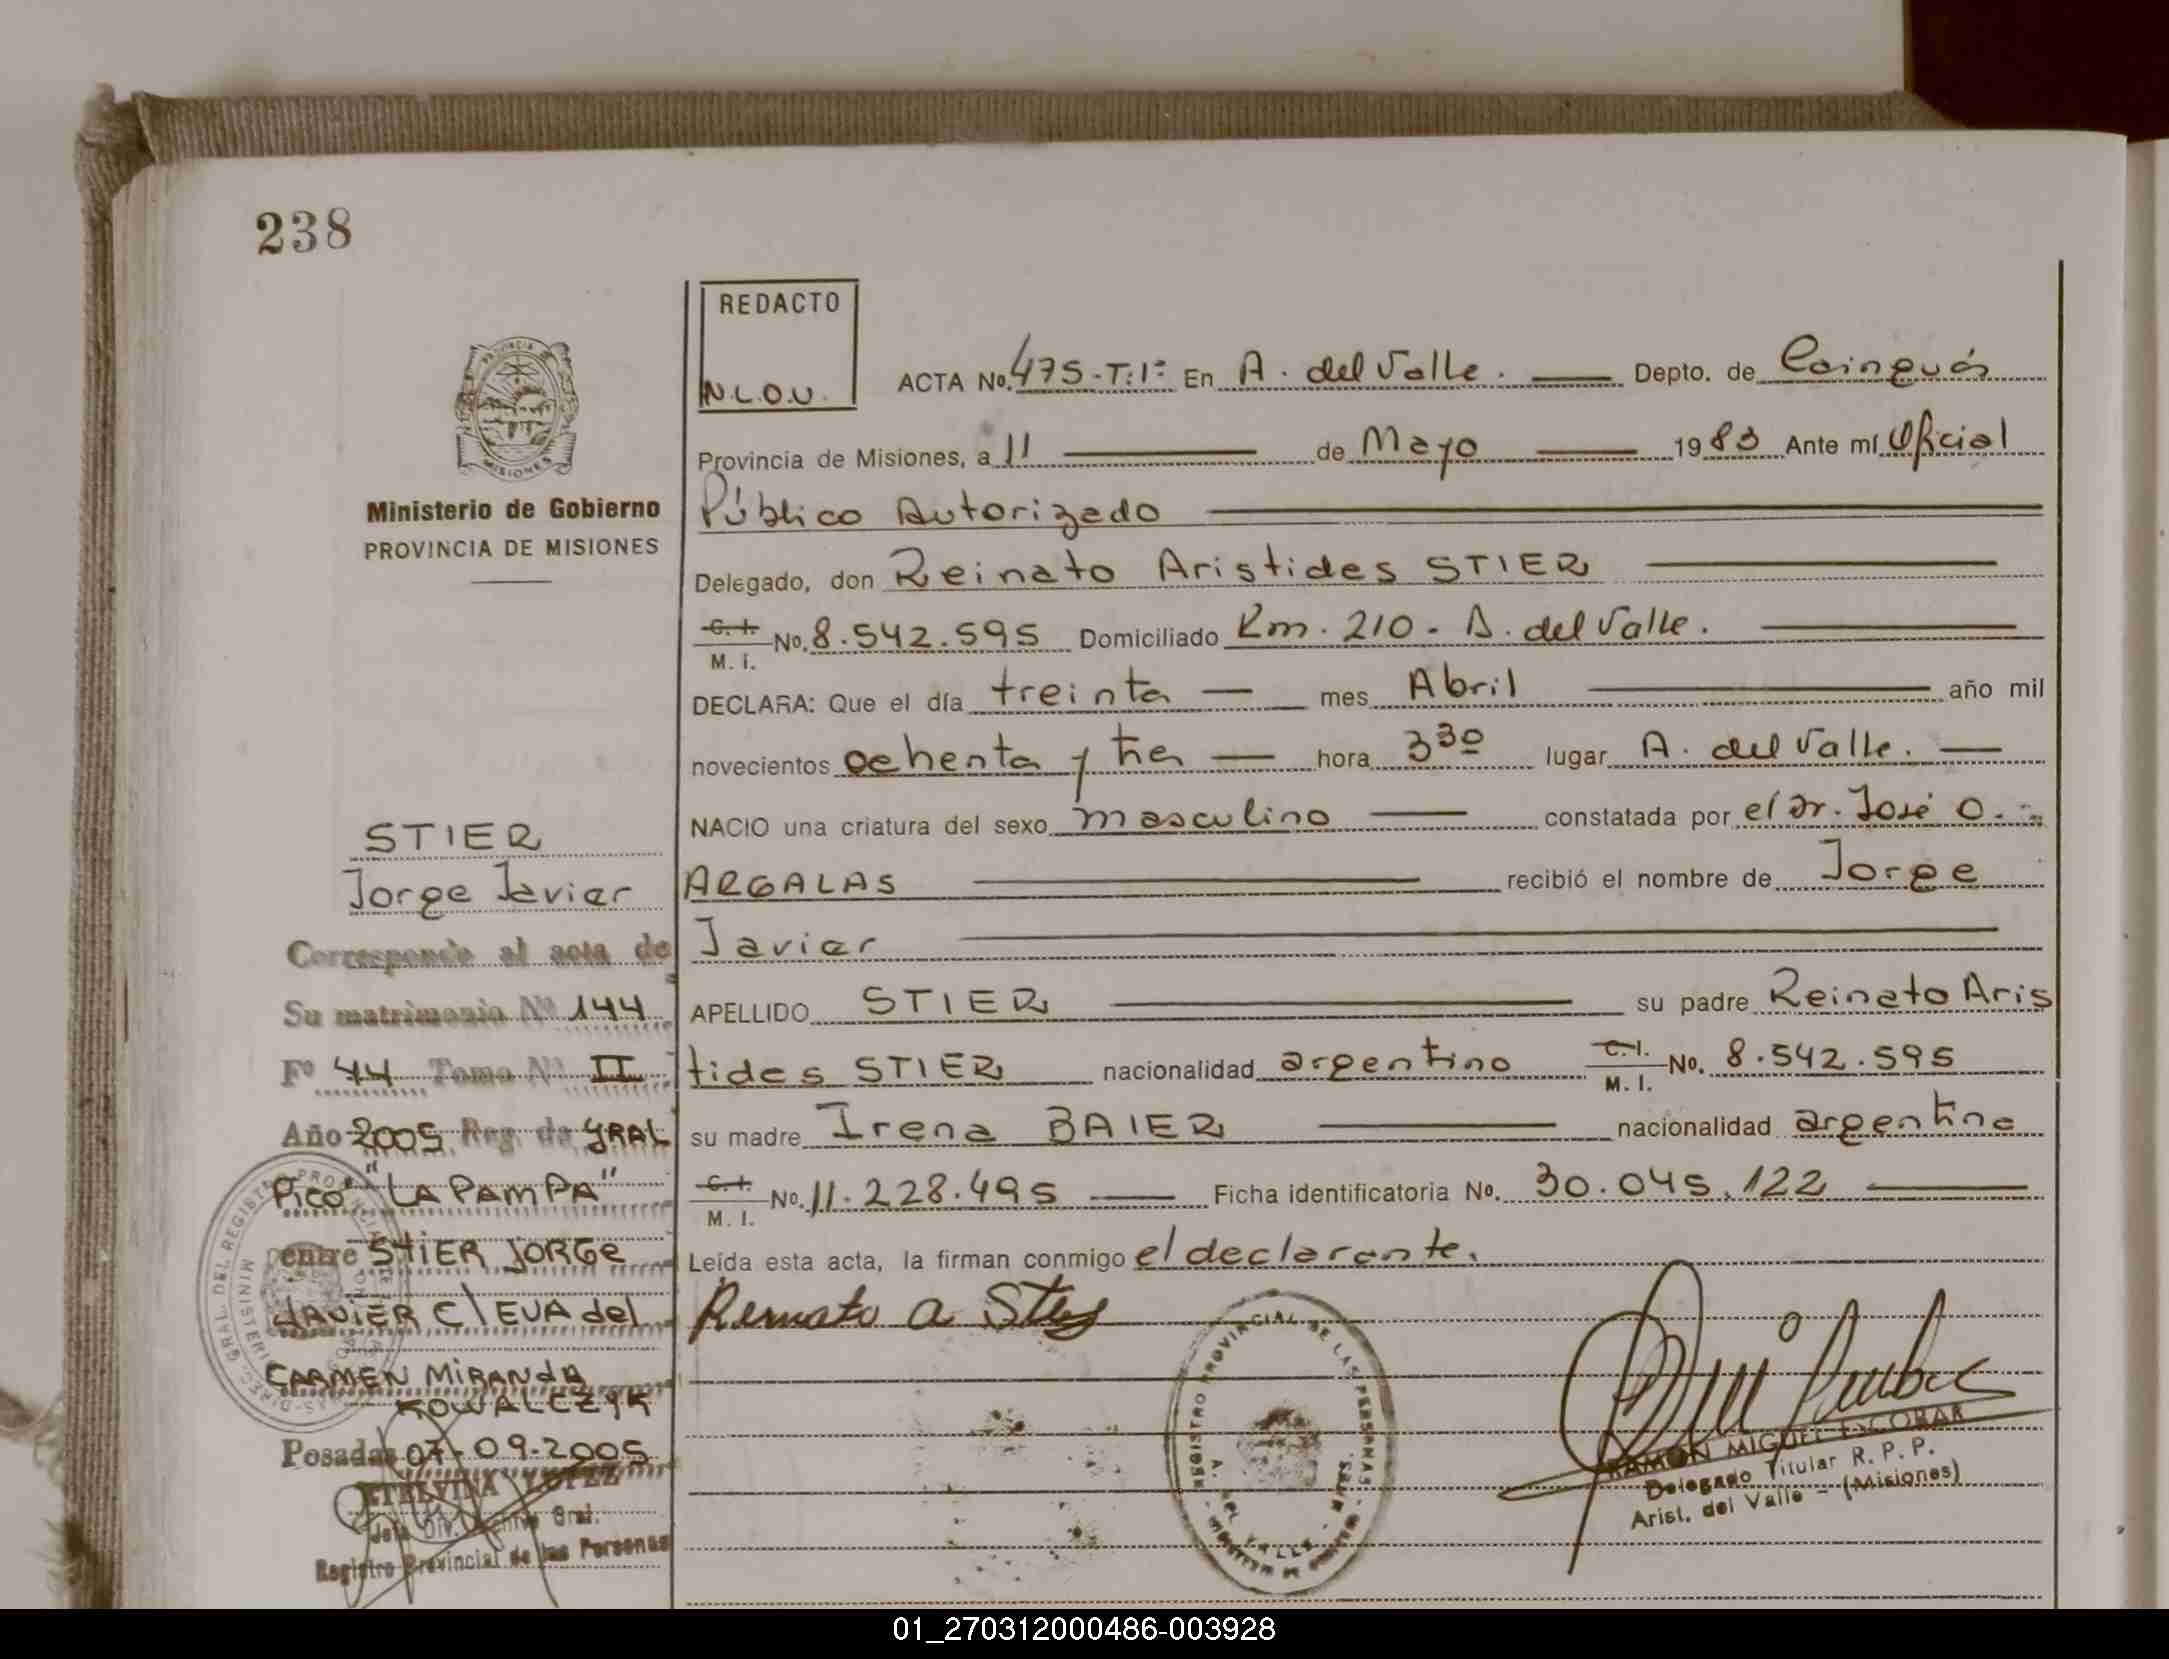 238
REDACTO
N.L.O.U.
ACTA No. 475-T:1º En A. del Valle. Depto. de Cainguás
Provincia de Misiones, a 11 de Mayo 1983 Ante mí Oficial
Público Autorizado
Delegado, don Reinato Aristides STIER
C. I. M. I. No. 8.542.595 Domiciliado Km. 210 - A. del Valle.
DECLARA: Que el día treinta mes Abril año mil
novecientos ochenta y tres hora 3 30 lugar A. del Valle.
NACIO una criatura del sexo masculino constatada por el Dr. José O.
ARGALAS recibió el nombre de Jorge
Javier
APELLIDO STIER su padre Reinato Aris
tides STIER nacionalidad argentino C. I. M. I. No. 8.542.595
su madre Irena BAIER nacionalidad argentina
C. I. M. I. No. 11.228.495 Ficha identificatoria No. 30.045.122
Leída esta acta, la firman conmigo el declarante.
PROVINCIA DE
MISIONES
Ministerio de Gobierno
PROVINCIA DE MISIONES
STIER
Jorge Javier
Corresponde al acta de
Su matrimonio Nº 144
Fº 44 Tomo Nº II
Año 2005 Reg. de GRAL
Pico "LA PAMPA"
entre STIER JORGE
JAVIER C/ EVA del
CARMEN MIRANDA
KOWALCZYK
Posadas 07-09-2005
ETELVINA LOPEZ
Jefa Div. Archivo Gral.
Registro Provincial de las Personas
REGISTRO PROVINCIAL DE LAS PERSONAS
A. DEL VALLE
RAMON MIGUEL ESCOBAR
Delegado Titular R. P. P.
Arist. del Valle - (Misiones)
01_270312000486-003928